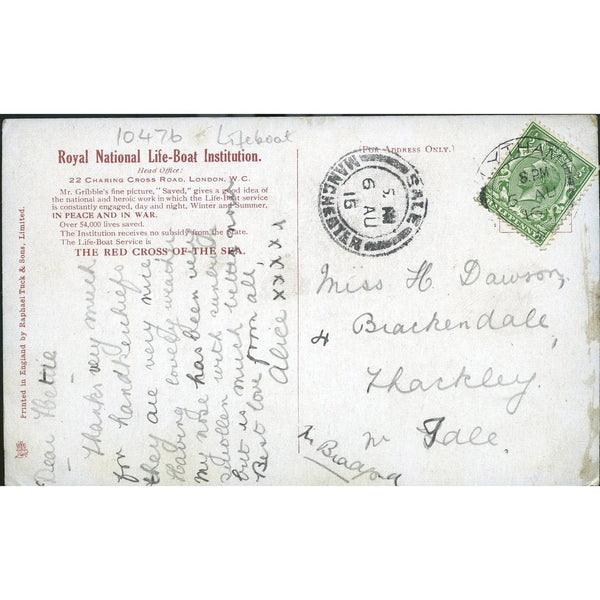 10476 Lifeboat
Royal National Life-Boat Institution.
Head Office:
22 CHARING CROSS ROAD, LONDON, W.C.
Mr. Gribble's fine picture, "Saved," gives a good idea of
the national and heroic work in which the Life-Boat service
is constantly engaged, day and night, Winter and Summer,
IN PEACE AND IN WAR.
Over 54,000 lives saved.
The Institution receives no subsidy from the State.
The Life-Boat Service is
THE RED CROSS OF THE SEA.
Printed in England by Raphael Tuck & Sons, Limited.
Dear Hettie
Thanks very much
for handkerchiefs
they are very nice
Having lovely weather
My nose has been very
swollen with sunburn
but is much better now
Best love from all,
Alice xxxxx
(FOR ADDRESS ONLY.)
SALE
6 AU
15
MANCHESTER
LYTHAM
8 PM
Miss H. Dawson,
4 Brackendale,
Thackley,
nr Sale.
Nr Bradford